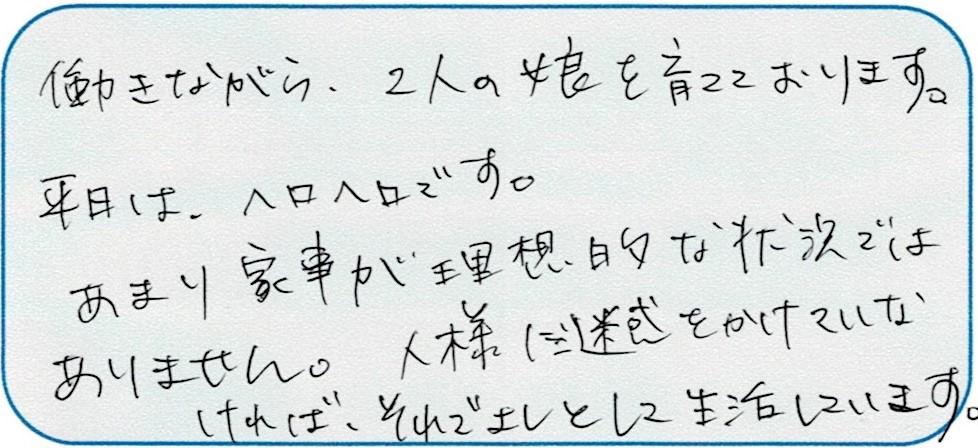 働きながら、2人の娘を育てております。
平日は、ヘロヘロです。
あまり家事が理想的な状況では
ありません。人様に迷惑をかけていな
ければ、それでよしとして生活しています。